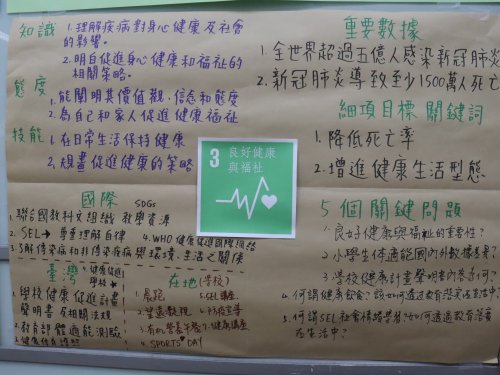 知識
1. 理解疾病對身心健康及社會
的影響。
2. 明白促進身心健康和福祉的
相關策略。
態度
1. 能闡明其價值觀、信念和態度
2. 為自己和家人促進健康福祉
技能
1. 在日常生活保持健康
2. 規畫促進健康的策略
3 良好健康
與福祉
重要數據
1. 全世界超過五億人感染新冠肺炎
2. 新冠肺炎導致至少1500萬人死亡
細項目標 關鍵詞
1. 降低死亡率
2. 增進健康生活型態
國際 SDGs
1. 聯合國教科文組織 教學資源
2. SEL→尊重理解自律
4. WHO 健康促進國際
3. 了解傳染病和非傳染疾病與環境、生活之關係
臺灣 健康促進
學校
1. 學校健康促進計畫
聲明書 及相關法規
2. 教育部體適能測驗
3. 健康
在地(學校)
1. 晨跑
2. 望遠
3. 有機營養午餐
4. SPORTS DAY
5. SEL 講座
6. 防疫宣導
7. 健康講座
5個關鍵問題
1. 良好健康與福祉的重要性?
2. 小學生體適能國內外數據差異?
3. 學校健康計畫聲明書內容為何?
4. 何謂健康飲食?該如何透過教育落實在生活中?
5. 何謂SEL社會情緒學習?如何透過教育落實
在生活中?